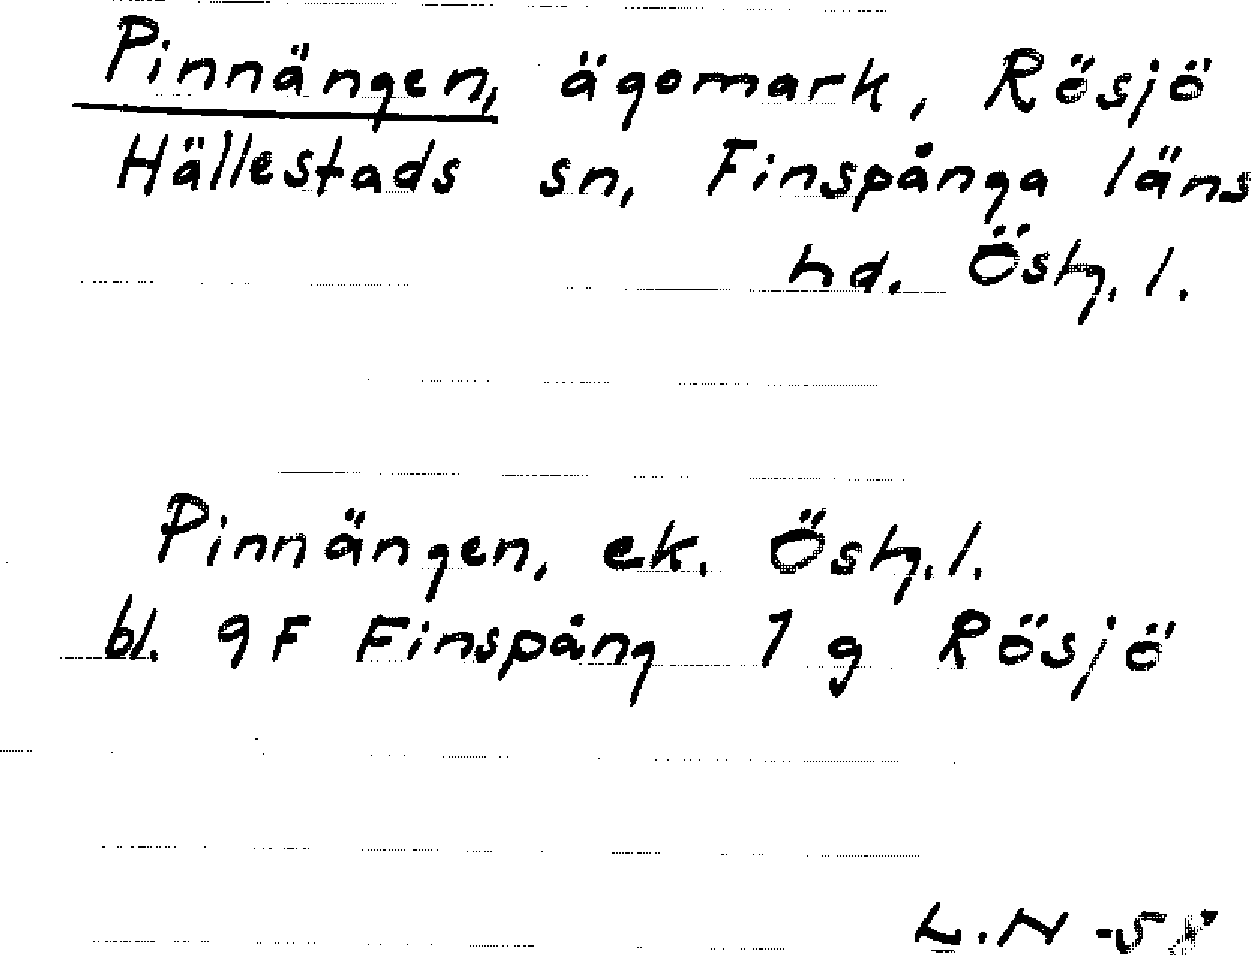 Pinnängen, ägomark, Rösjö
Hällestads sn, Finspånga läns
hd. Östg. l.
Pinnängen, ek. Östg. l.
bl. 9F Finspång 1 g Rösjö
L. N